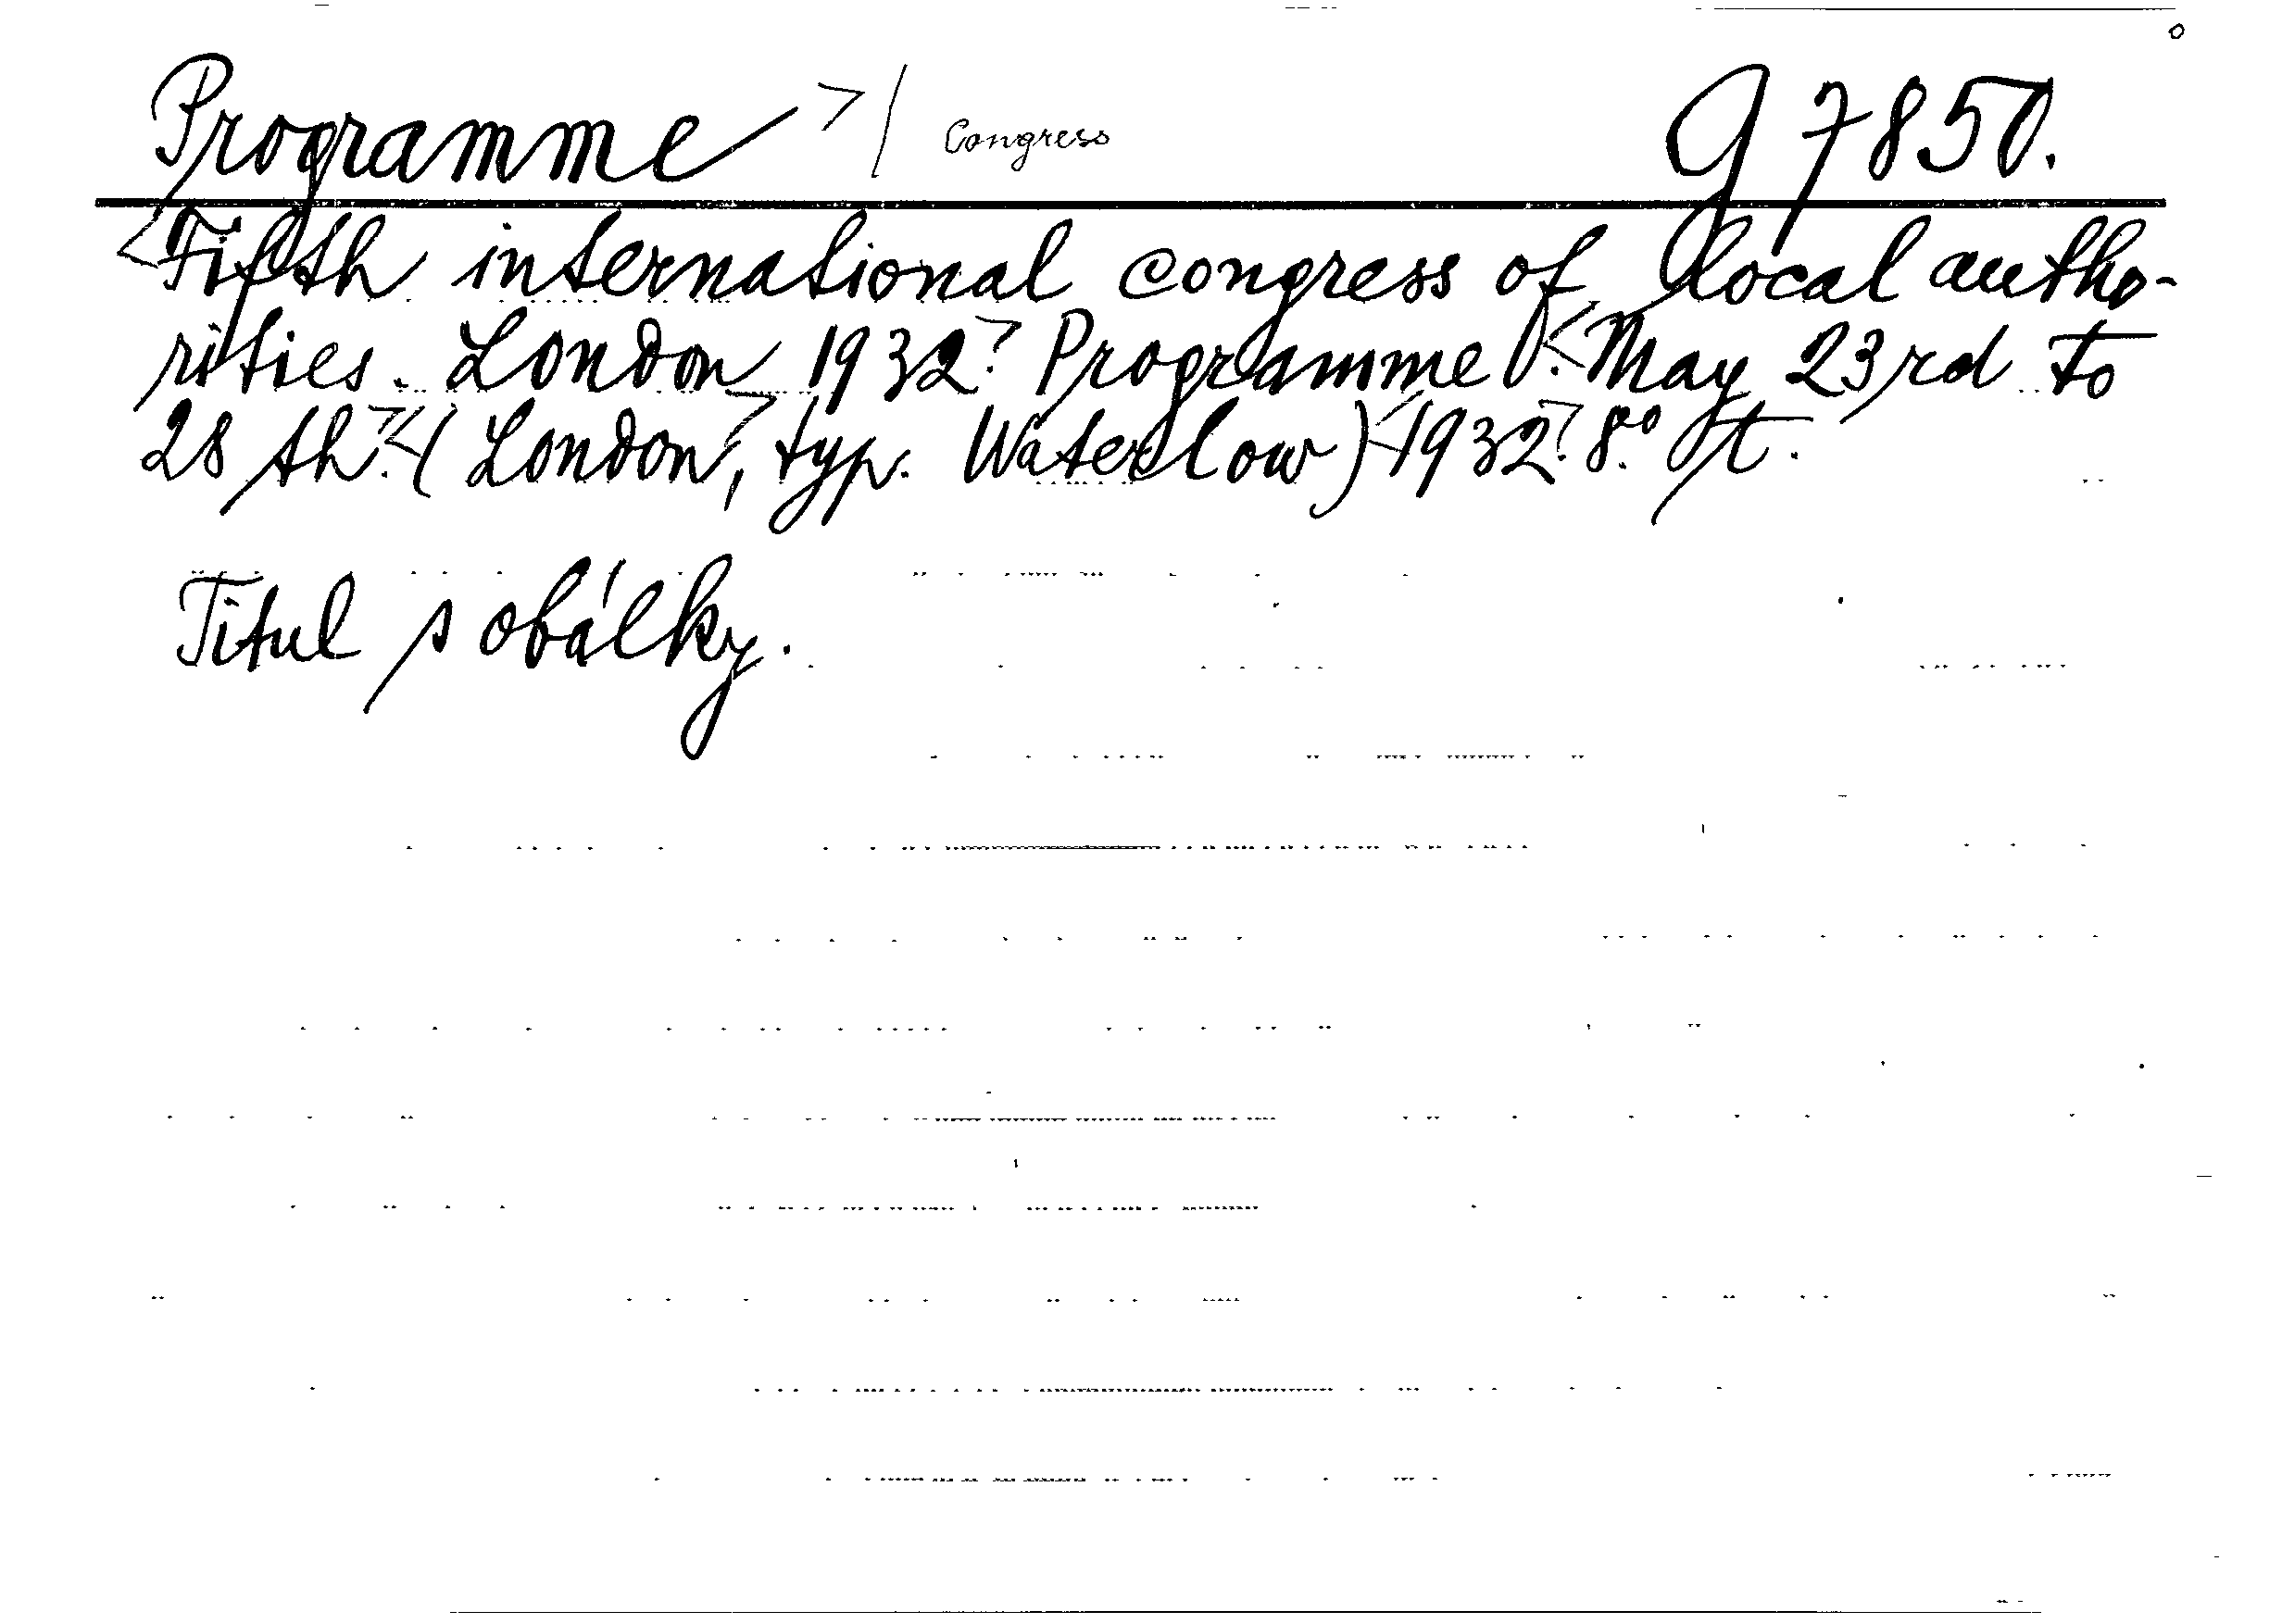 Programme > / Congress g 7850.
<Fifth international congress of local autho-
rities. London 1932.> Programme.<May 23rd to
28 th.><(London>, typ. Waterlow)<1932.> 8.° ſt.
Titul s obálky.